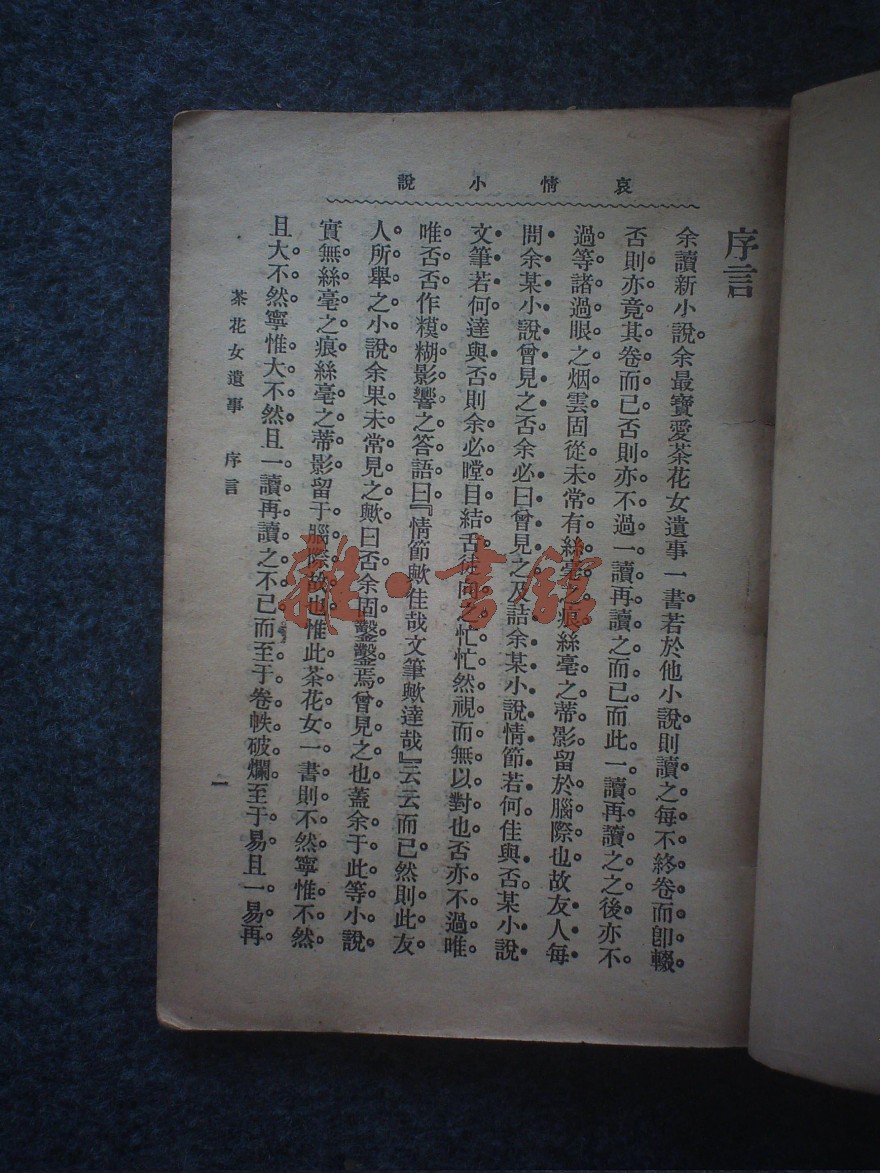 哀情小說
序言
余讀新小說余最寶愛茶花女遺事一書若於他小說則讀之每不終卷而卽輟
否則亦竟其卷而已否則亦不過一讀再讀之而已而此一讀再讀之之後亦不
過等諸過眼之烟雲固從未常有絲毫之痕絲毫之蒂影留於腦際也故友人每
問余某小說曾見之否余必曰曾見之及詰余某小說情節若何佳與否某小說
文筆若何達與否則余必瞠目結舌徒向之忙忙然視而無以對也否亦不過唯
唯否否作糢糊影響之答語曰『情節歟佳哉文筆歟達哉』云云而已然則此友
人所舉之小說余果未常見之歟曰否余固鑿鑿焉曾見之也蓋余于此等小說
實無絲毫之痕絲毫之蒂影留于腦際故也惟此茶花女一書則不然寧惟不然
且大不然寧惟大不然且一讀再讀之不已而至于卷帙破爛至于易且一易再
茶花女遺事 序言 一
雜·書館